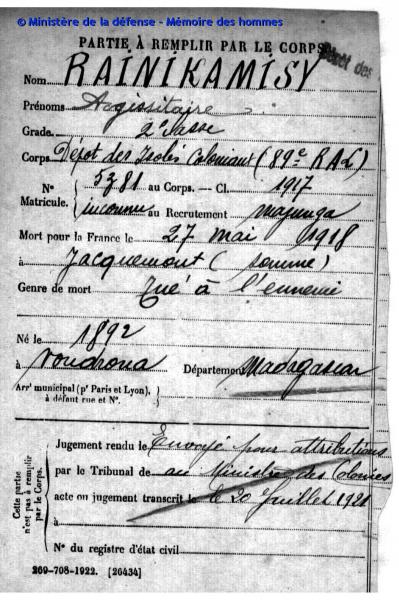 © Ministère de la défense - Mémoire des hommes
PARTIE À REMPLIR PAR LE CORPS
Nom RAINIKAMISY
Prénoms
Grade 2e classe
Corps Dépot des Isolés Coloniaux (89e RAL)
N° 5381 au Corps. — Cl. 1917
Matricule. inconnu au Recrutement majunga
Mort pour la France le 27 mai 1918
à Jacquemont (somme)
Genre de mort Tué à l'ennemi
Né le 1892
à Voudrona Département Madagascar
Arrt municipal (pr Paris et Lyon),
à défaut rue et N°.
Cette partie
n'est pas à remplir
par le Corps.
Jugement rendu le Envoyé pour attributions
par le Tribunal de au Ministre des Colonies
acte ou jugement transcrit le 20 Juillet 1921
à
N° du registre d'état civil
269-708-1922. [26434]